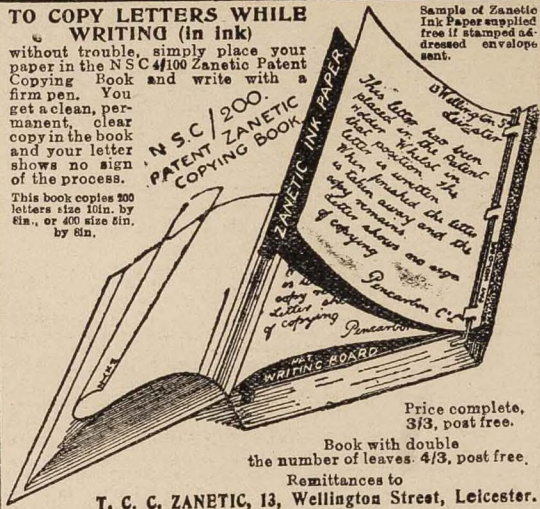 TO COPY LETTERS WHILE
WRITING (in ink)
without trouble, simply place your
paper in the N S C 4/100 Zanetic Patent
Copying Book and write with a
firm pen. You
get a clean, per-
manent, clear
copy in the book
and your letter
shows no sign
of the process.
This book copies 200
letters size 10in. by
8in., or 400 size 5in.
by 8in.
N.S.C/200.
PATENT ZANETIC
COPYING BOOK
Sample of Zanetic
Ink Paper supplied
free if stamped ad-
dressed envelope
sent.
ZANETIC INK PAPER
Wellington St
Leicester
This letter has been
placed in the Patent
Holder Whilst in
that position the
letter is written
When finished the letter
is taken away and the
copy remains.
Letter shows no sign
of copying
Pencarbon Co
copy
Letter
of copying
Pencarbon
WRITING BOARD
Price complete,
3/3, post free.
Book with double
the number of leaves. 4/3, post free.
Remittances to
T. C. C. ZANETIC, 13, Wellington Street, Leicester.